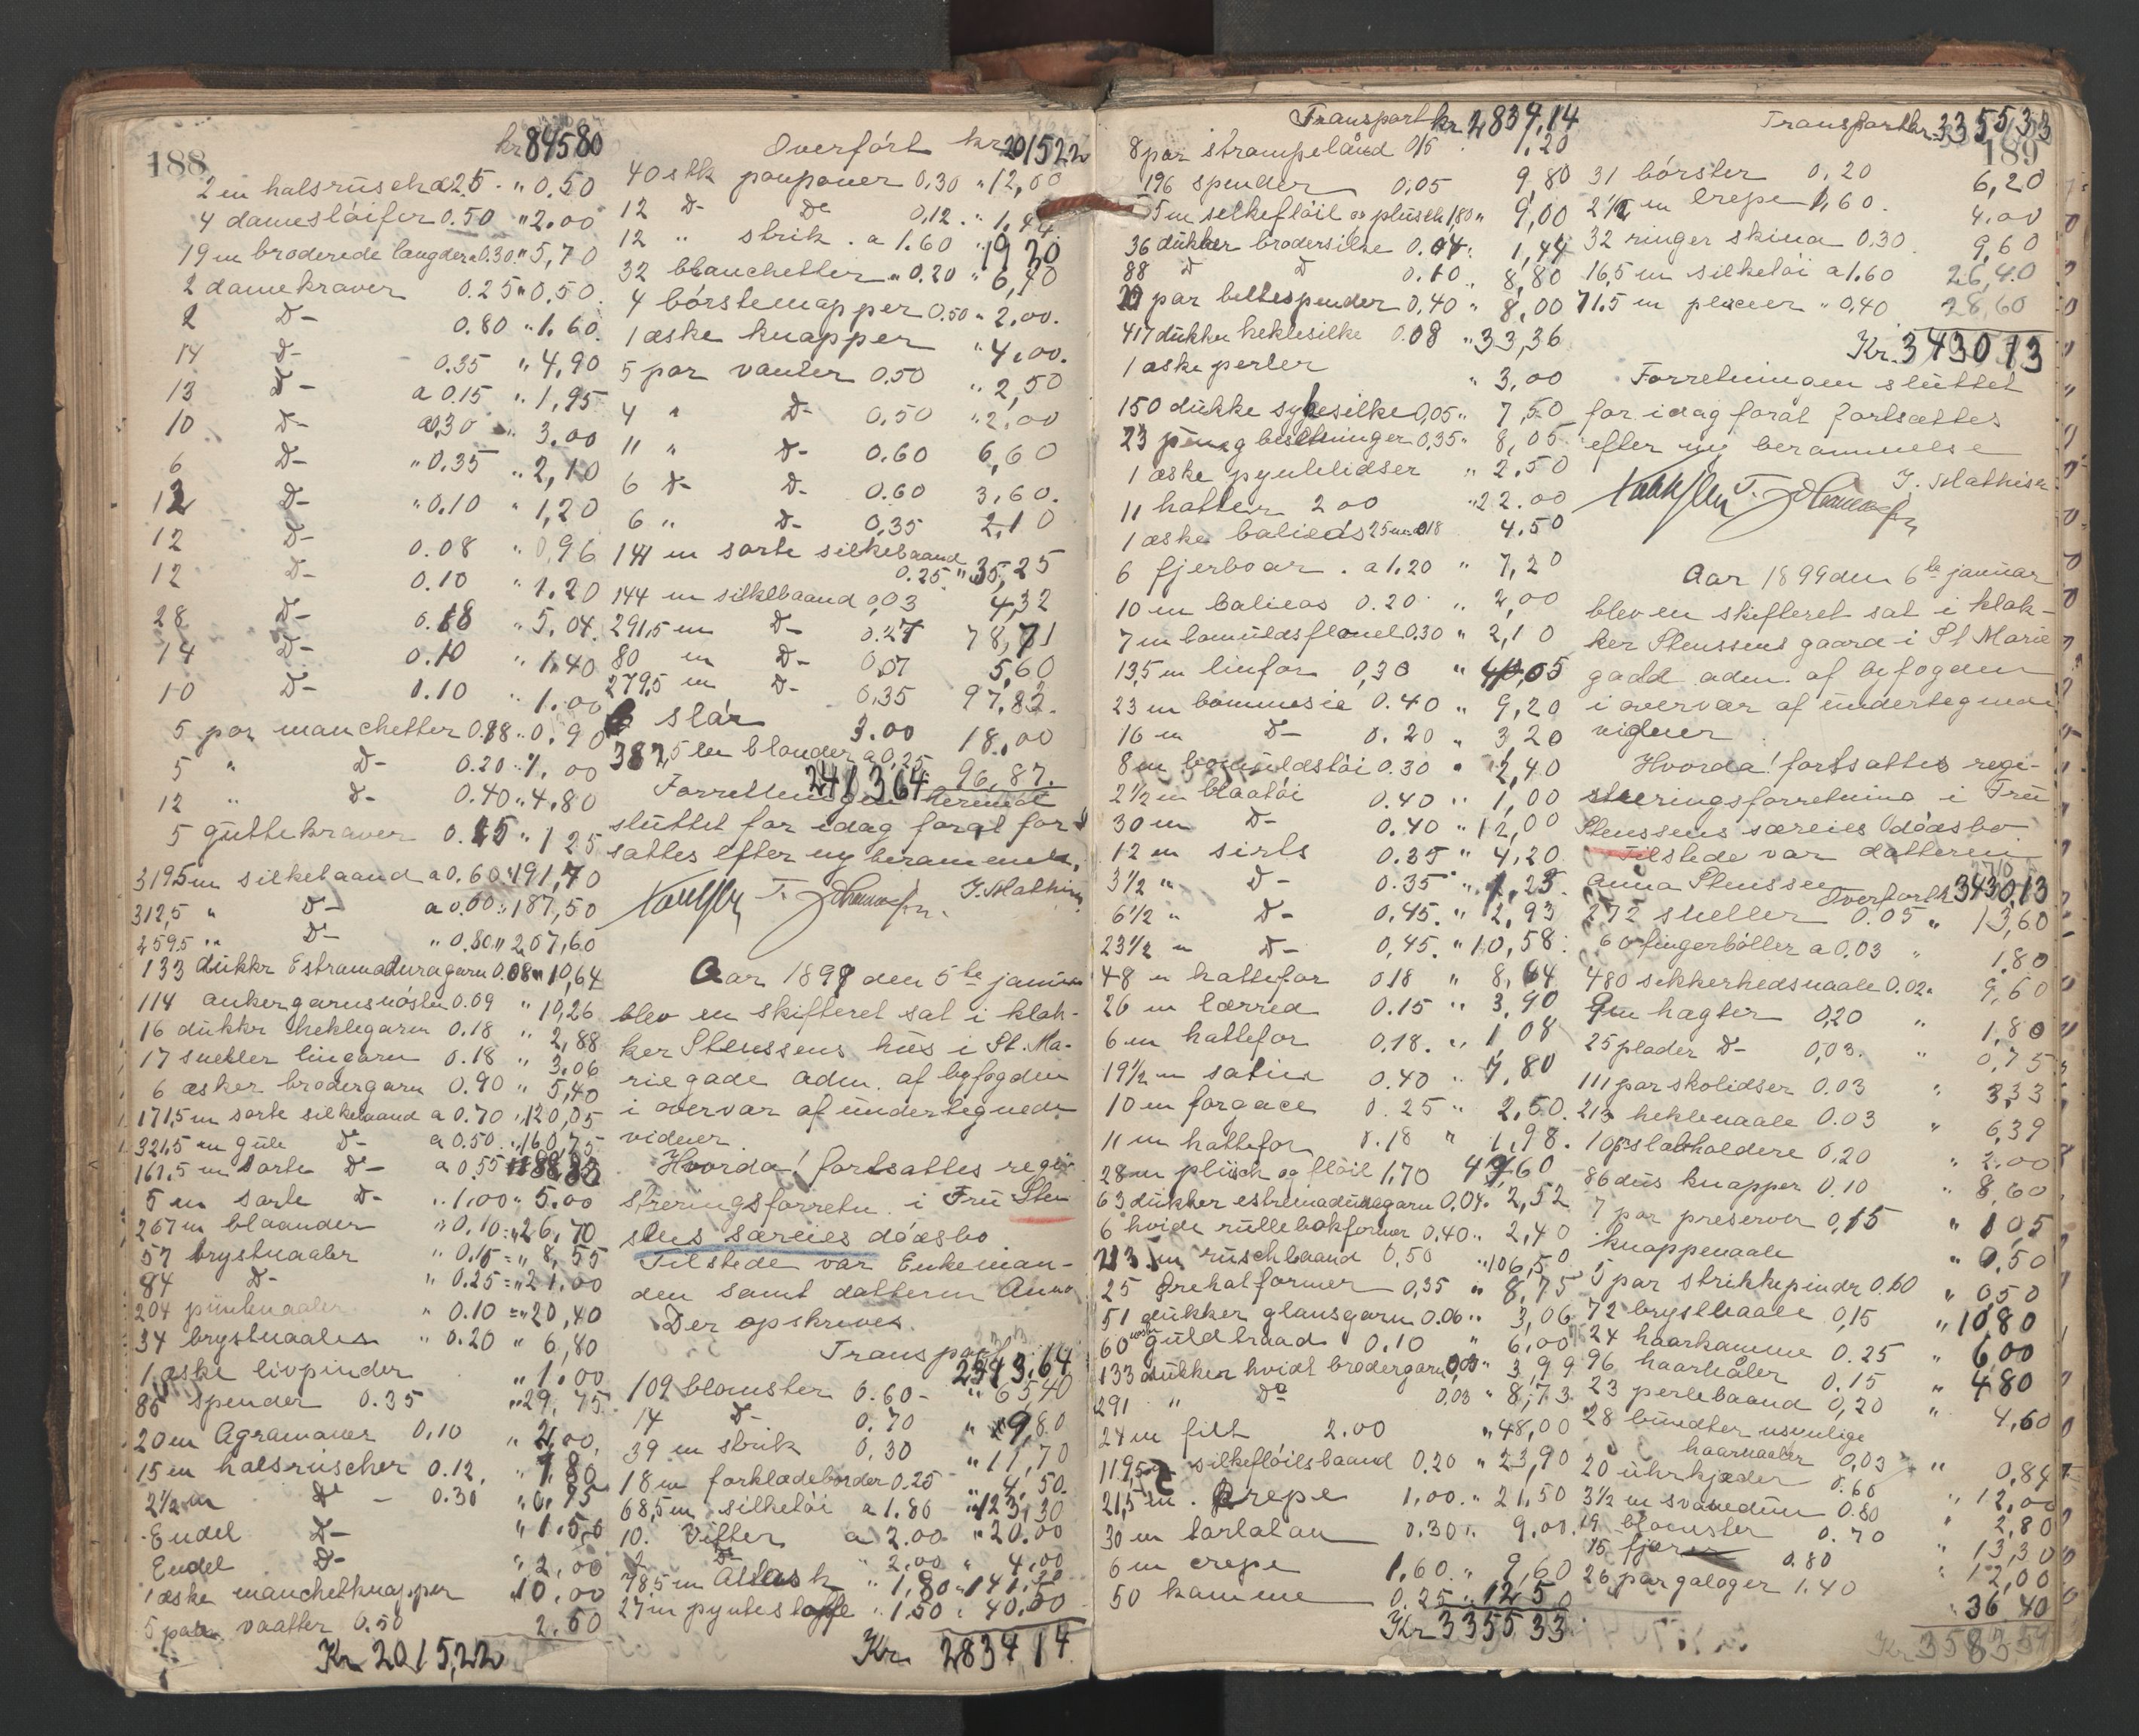 188
kr 845 80
2 m halsrüsch a 25 " 0.50
4 damesløifer 0.50 " 2.00
19 m broderede længder a 0.30 " 5,70
2 damekraver 0.25 " 0.50
2 D- 0.80 " 1.60
14 D- 0.35 " 4,90
13 D- a 0.15 " 1,95
10 D- a 0,30 " 3.00
6 D- " 0.35 " 2,10
12 D- " 0.10 " 1,20
12 D- 0.08 " 0,96
12 D- 0.10 " 1.20
28 D- 0.18 " 5.04
14 D- 0.10 " 1,40
10 D- 0.10 " 1.00
5 par manchetter 0.18 " 0.90
5 " D- 0.20 " 1.00
12 " D- 0.40 " 4.80
5 guttekraver 0.25 " 1 25
319,5 m silkebaand a 0.60 " 191,70
312,5 " D- a 0.60 " 187,50
259,5 " D- " 0.80 " 207,60
133 dukker Estramaduragarn 0.08 " 10,64
114 ankergarnsnøster 0.09 " 10,26
16 dukker heklegarn 0.18 " 2,88
17 sneller lingarn 0.18 " 3.06
6 æsker brodergarn 0.90 " 5,40
171,5 m sorte silkebaand a 0.70 " 120,05
321,5 m gule D- a 0.50 " 160,75
161,5 m sorte D- a 0.55
5 m sorte D- " 1,00 " 5.00
267 m blaander " 0.10 = " 26,70
57 brystnaaler " 0.15 = " 8,55
84 D- " 0.25 = " 21,00
204 pyntenaaler " 0.10 = " 20,40
34 brystnaaler " 0.20 " 6,80
1 æske livpinder " 1.00
85 spender 0.35 " 29,75
20 m Agramaner 0,10 " 2,00
15 m halsrüscher 0.12 " 1,80
2 1/2 m D- - 0.30 " 0,75
Endel D- " 1.50
Endel D- " 2,00
1 æske manchetknapper " 10,00
5 par vaatter 0.50 2.50
Kr 2015,22
Overført kr 2015 22
40 stk pouponer 0,30 " 12,00
12 D- Do 0,12 " 1,44
12 " strik . a 1.60 " 19 20
32 blanchetter " 0.20 " 6,40
4 børstemapper 0.50 " 2,00
1 æske knapper " 4,00
5 par vanter 0,50 " 2,50
4 " D- 0,50 " 2,00
11 " D- 0.60 6,60
6 D- D- 0.60 3,60
6 " D- 0,35 2,10
141 m sorte silkebaand
0.25 " 35,25
144 m silkebaand 0,03 4,32
291,5 m D- 0.27 78,71
80 m D- 0,07 5,60
279,5 m D- 0,35 97,83
6 slør 3.00 18.00
387,5 m blonder a 0,25 96,87
2413 64
Forretningen hermed
sluttet for idag forat for-
sættes efter ny berammelse.
J. Mathisen
Aar 1899 den 5te januar
blev en skifteret sat i klok-
ker Stenssens hus i St. Ma-
rie gade adm. af byfogden
i overvær af undertegnede
vidner
Hvorda! fortsattes regi-
streringsforretn. i Fru Sten-
sens særeies dødsbo
Tilstede var Enkeman-
den samt datteren Anna
Der opskreves
Transport 2413,64
109 blomster 0.60 - " 65,40
14 D- 0,70 " 9,80
39 m strik 0,30 " 11,70
18 m forklædeborder 0.25 " 4,50
68,5 m silketøi a 1.80 " 123,30
10. Vifter a 2.00 " 20.00
2 D- " 2.00 " 4,00
78,5 m Atlask " 1,80 " 141,30
27 m pyntestoffe " 1,50 " 40,50
Kr 2834 14
Transport kr 2834,14
8 par strømpebånd 0,15 1,20
196 spender 0,05 9,80
5 m silkefløil og plüsch 1,80 " 9,00
36 dukker brodersilke 0.04 " 1,44
88 D D 0.10 " 8,80
20 par beltespender 0,40 " 8,00
417 dukker heklesilke 0.08 " 33,36
1 æske perler " 3,00
150 dukke sysilke 0,05 " 7,50
23 besetninger 0,35 " 8,05
1 æske pyntelidser " 2.50
11 hatter 2 00 " 22.00
1 æske 25 m 0,18 4.50
6 fjerboar . a 1.20 " 7,20
10 m calicos 0.20 " 2,00
7 m bomuldsflonel 0.30 " 2,10
13,5 m linfor 0,30 " 4,05
23 m bommesie 0.40 " 9,20
16 m D- 0.20 " 3 20
8 m bomuldstøi 0.30 " 2,40
2 1/2 m blaatøi 0.40 " 1,00
30 m D- 0.40 " 12,00
12 m sirts 0.35 " 4,20
3 1/2 " D- 0.35 " 1,23
6 1/2 " D- 0,45 " 2,93
23 1/2 " D- 0,45 " 10,58
48 " hattefor 0 18 " 8,64
26 m lærred 0.15 " 3,90
6 m hattefor 0.18 " 1 08
19 1/2 m satin 0.40 " 7,80
10 m forgace 0.25 " 2,50
11 m hattefor 0.18 " 1,98
28 m plüsch og fløil 1,70 47,60
63 dukker estremaduragarn 0,04 " 2,52
6 hvide rullebokformer 0.40 " 2,40
213 m rüschbaand 0,50 " 106,50
25 Drehatformer 0,35 " 8,75
51 dukker glansgarn 0.06 " 3,06
60 guldtraad 0.10 " 6,00
133 dukker hvidt brodergarn 0,03 " 3,99
291 " Do 0,03 " 8,73
24 m filt 2.00 " 48,00
119,5 m silkefløilsbaand 0,20 " 23,90
21,5 m . Crepe 1,00 " 21,50
30 m tarlatan 0.30 " 9,00
6 m crepe 1,60 " 9,60
50 kamme 0.25 " 12 50
Kr 3355 33
Transport kr 3355,33
189
31 børster 0,20 6,20
2 1/2 m Crepe 1,60 4.00
32 ringer skina 0.30 9,60
16,5 m silketøi a 1.60 26,40
71.5 m pleuer " 0,40 28,60
Kr. 3430 13
Forretningen sluttet
for idag forat fortsættes
efter ny berammelse
J. Mathisen
Aar 1899 den 6te januar
blev en skifteret sat i klok-
ker Stenssens gaard i St Marie
gade adm. af byfogden
i overvær af undertegnede
vidner
Hvorda! fortsattes regi-
streringsforretning i Fru
Stenssens særeies dødsbo
Tilstede var datteren
Anna Stenssen
Overført 3430,13
272 sneller 0.05 " 13,60
60 fingerbøller a 0.03 " 1.80
480 sikkerhedsnaale 0.02 " 9,60
9 m hagter 0,20 " 1,80
25 plader D- 0,03 " 0,75
111 par skolidser 0.03 " 3,33
213 heklenaale 0.03 " 6,39
10 slæbholdere 0,20 " 2.00
86 dus knapper 0.10 " 8,60
7 par preserver 0,15 " 1 05
knappenaale " 0,50
5 par strikkepinder 0.10 " 0 50
72 brystnaale 0,15 " 10 80
24 haarkamme 0.25 " 6,00
96 haarnåler 0.15 " 4 80
23 perlebaand 0,20 " 4,60
28 bundter usynlige
haarnaaler 0,03 " 0,84
20 uhrkjæder 0.60 " 12,00
3 1/2 m svanedun 0.80 " 2,80
19 blomster 0.70 " 13,30
15 fjærer 0.80 " 12,00
26 par galoger 1.40 " 36 40
Kr 3583 59